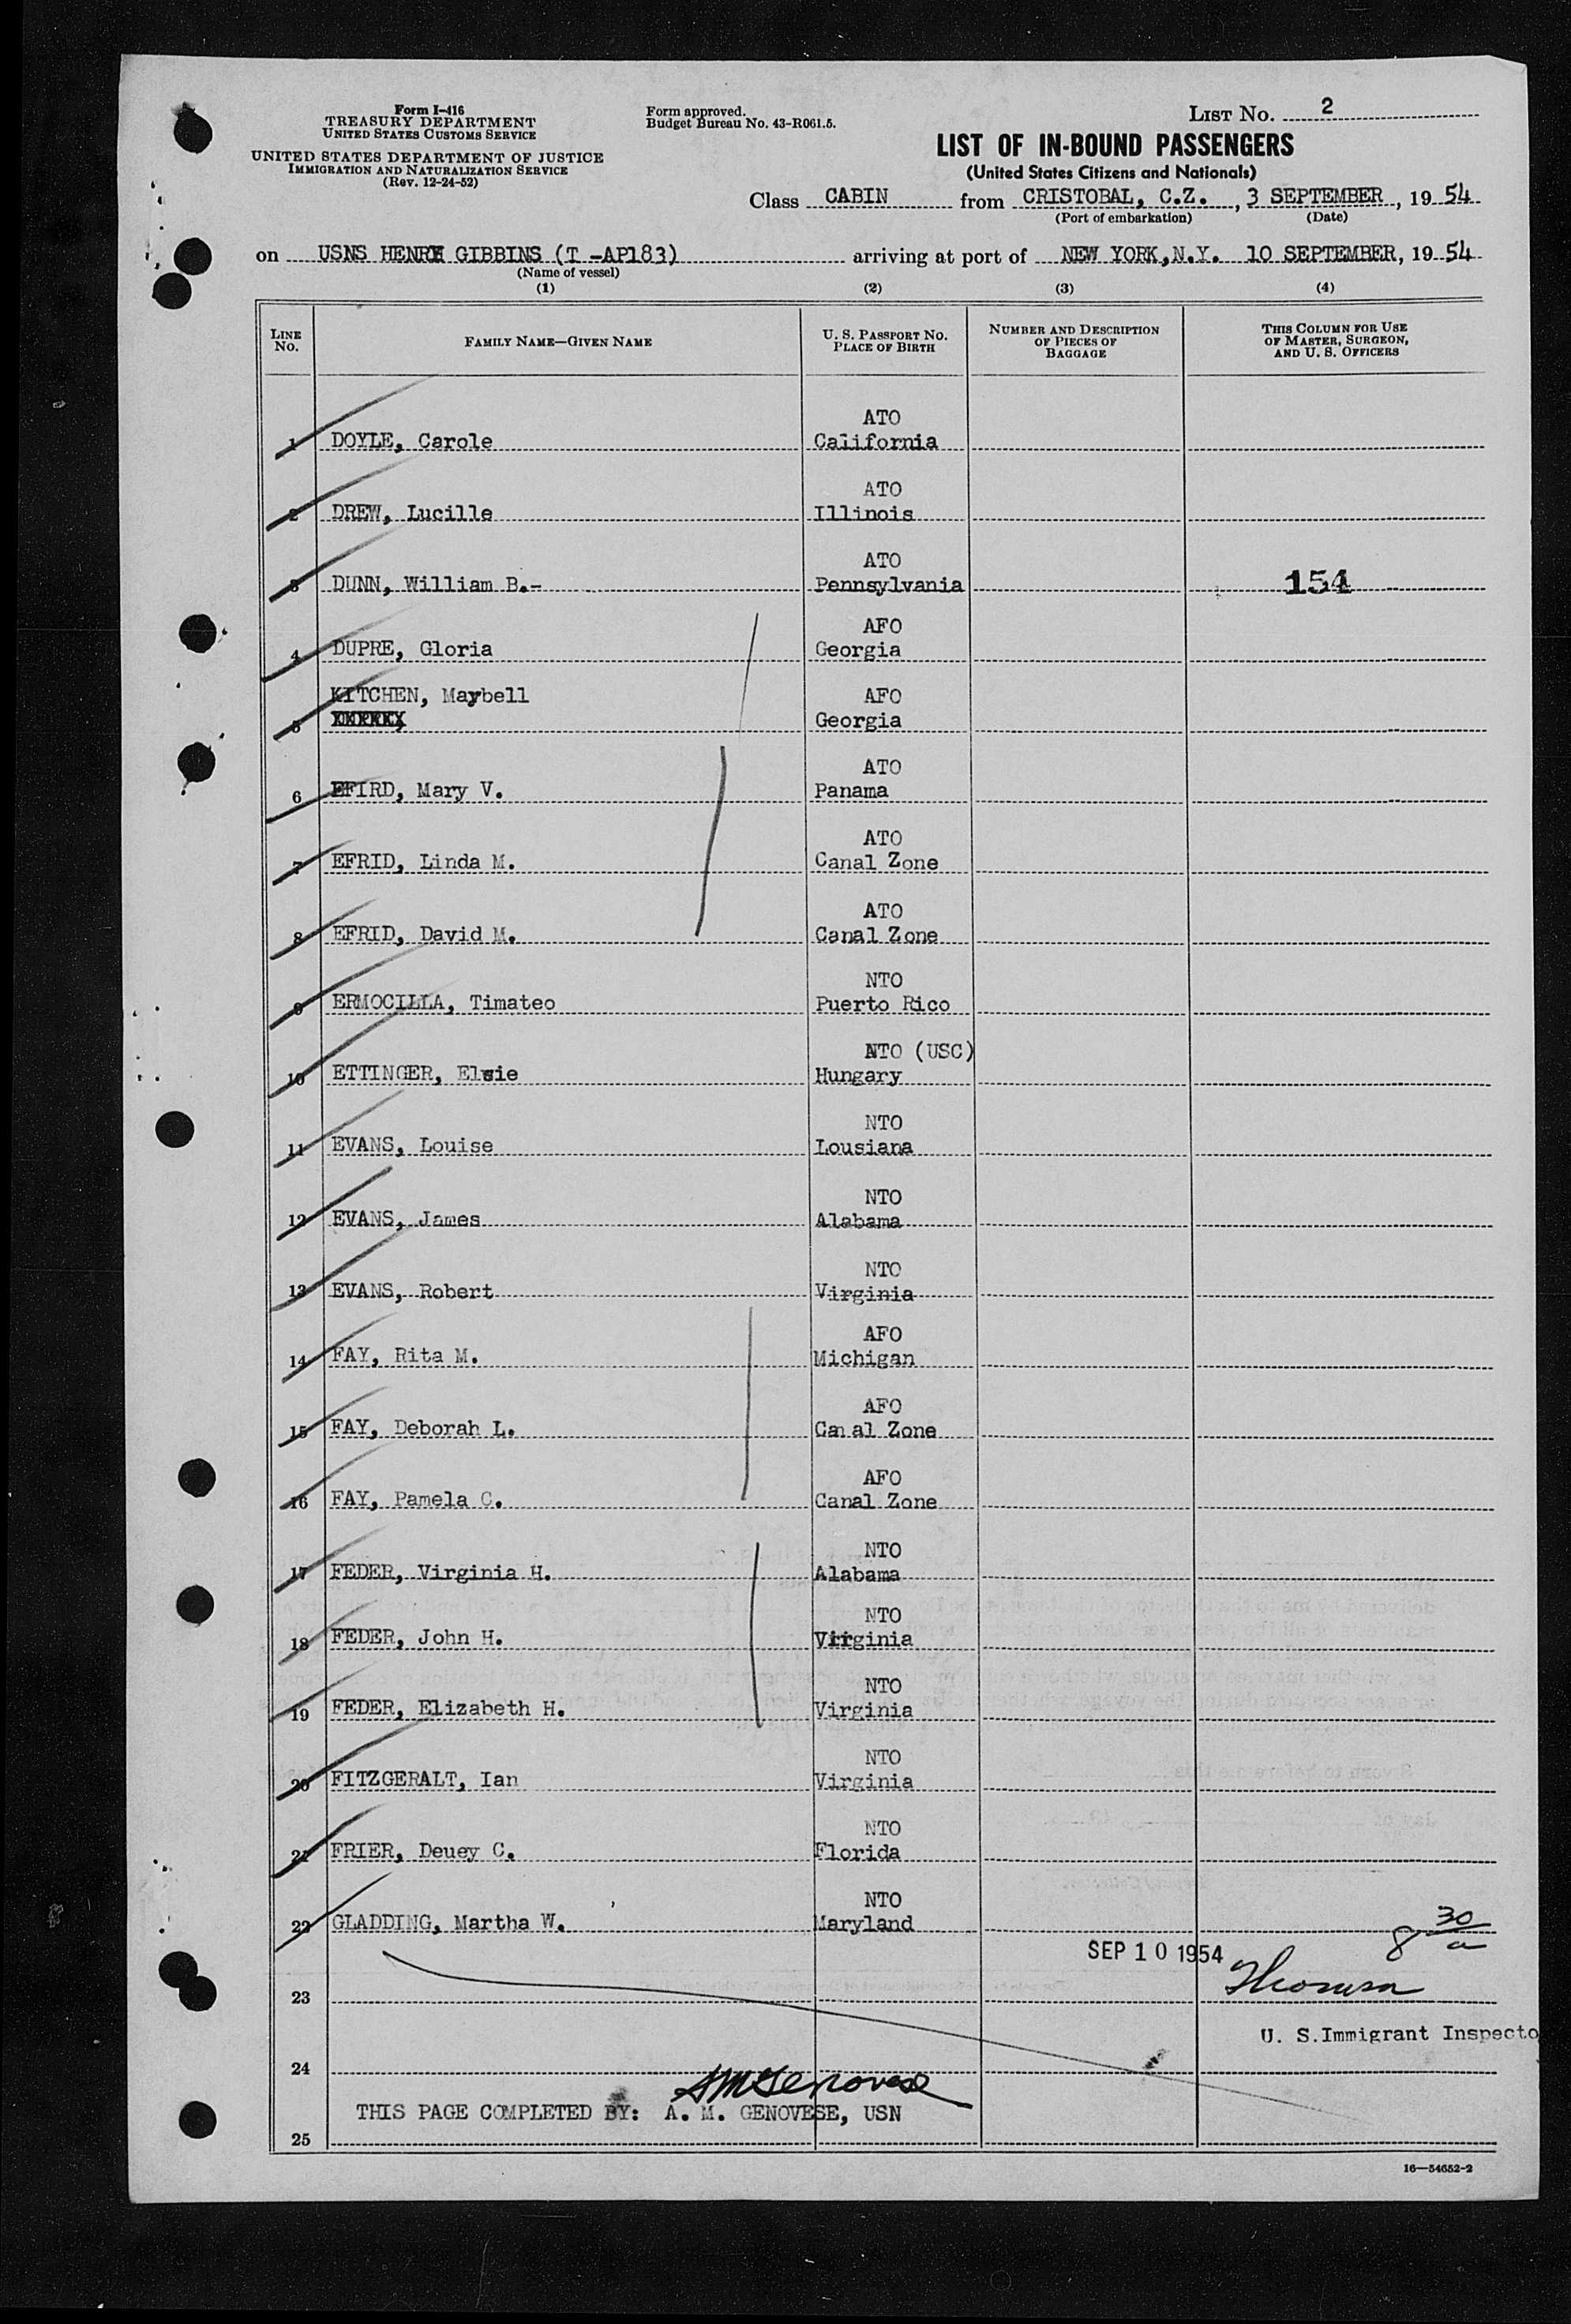 Form I-416
TREASURY DEPARTMENT
UNITED STATES CUSTOMS SERVICE
UNITED STATES DEPARTMENT OF JUSTICE
IMMIGRATION AND NATURALIZATION SERVICE
(Rev. 12-24-52)
Form approved.
Budget Bureau No. 43-R061.5.
LIST NO. 2
LIST OF IN-BOUND PASSENGERS
(United States Citizens and Nationals)
Class CABIN from CRISTOBAL, C.Z., 3 SEPTEMBER, 19 54
(Port of embarkation) (Date)
on USNS HENRY GIBBINS (T -AP183) arriving at port of NEW YORK,N.Y. 10 SEPTEMBER, 19 54
(Name of vessel)
(1) (2) (3) (4)
LINE NO. FAMILY NAME—GIVEN NAME U. S. PASSPORT NO. PLACE OF BIRTH NUMBER AND DESCRIPTION OF PIECES OF BAGGAGE THIS COLUMN FOR USE OF MASTER, SURGEON, AND U. S. OFFICERS
ATO
1 DOYLE, Carole California
ATO
2 DREW, Lucille Illinois
ATO
3 DUNN, William B.- Pennsylvania 154
AFO
4 DUPRE, Gloria Georgia
KITCHEN, Maybell AFO
5 Georgia
ATO
6 EFIRD, Mary V. Panama
ATO
7 EFRID, Linda M. Canal Zone
ATO
8 EFRID, David M. Canal Zone
NTO
9 ERMOCILLA, Timateo Puerto Rico
NTO (USC)
10 ETTINGER, Elsie Hungary
NTO
11 EVANS, Louise Lousiana
NTO
12 EVANS, James Alabama
NTO
13 EVANS, Robert Virginia
AFO
14 FAY, Rita M. Michigan
AFO
15 FAY, Deborah L. Canal Zone
AFO
16 FAY, Pamela C. Canal Zone
NTO
17 FEDER, Virginia H. Alabama
NTO
18 FEDER, John H. Virginia
NTO
19 FEDER, Elizabeth H. Virginia
NTO
20 FITZGERALT, Ian Virginia
NTO
21 FRIER, Deuey C. Florida
NTO
22 GLADDING, Martha W. Maryland
8 30/a
SEP 10 1954
23
U. S.Immigrant Inspecto
24
AMGenovese
THIS PAGE COMPLETED BY: A. M. GENOVESE, USN
25
16—54652-2